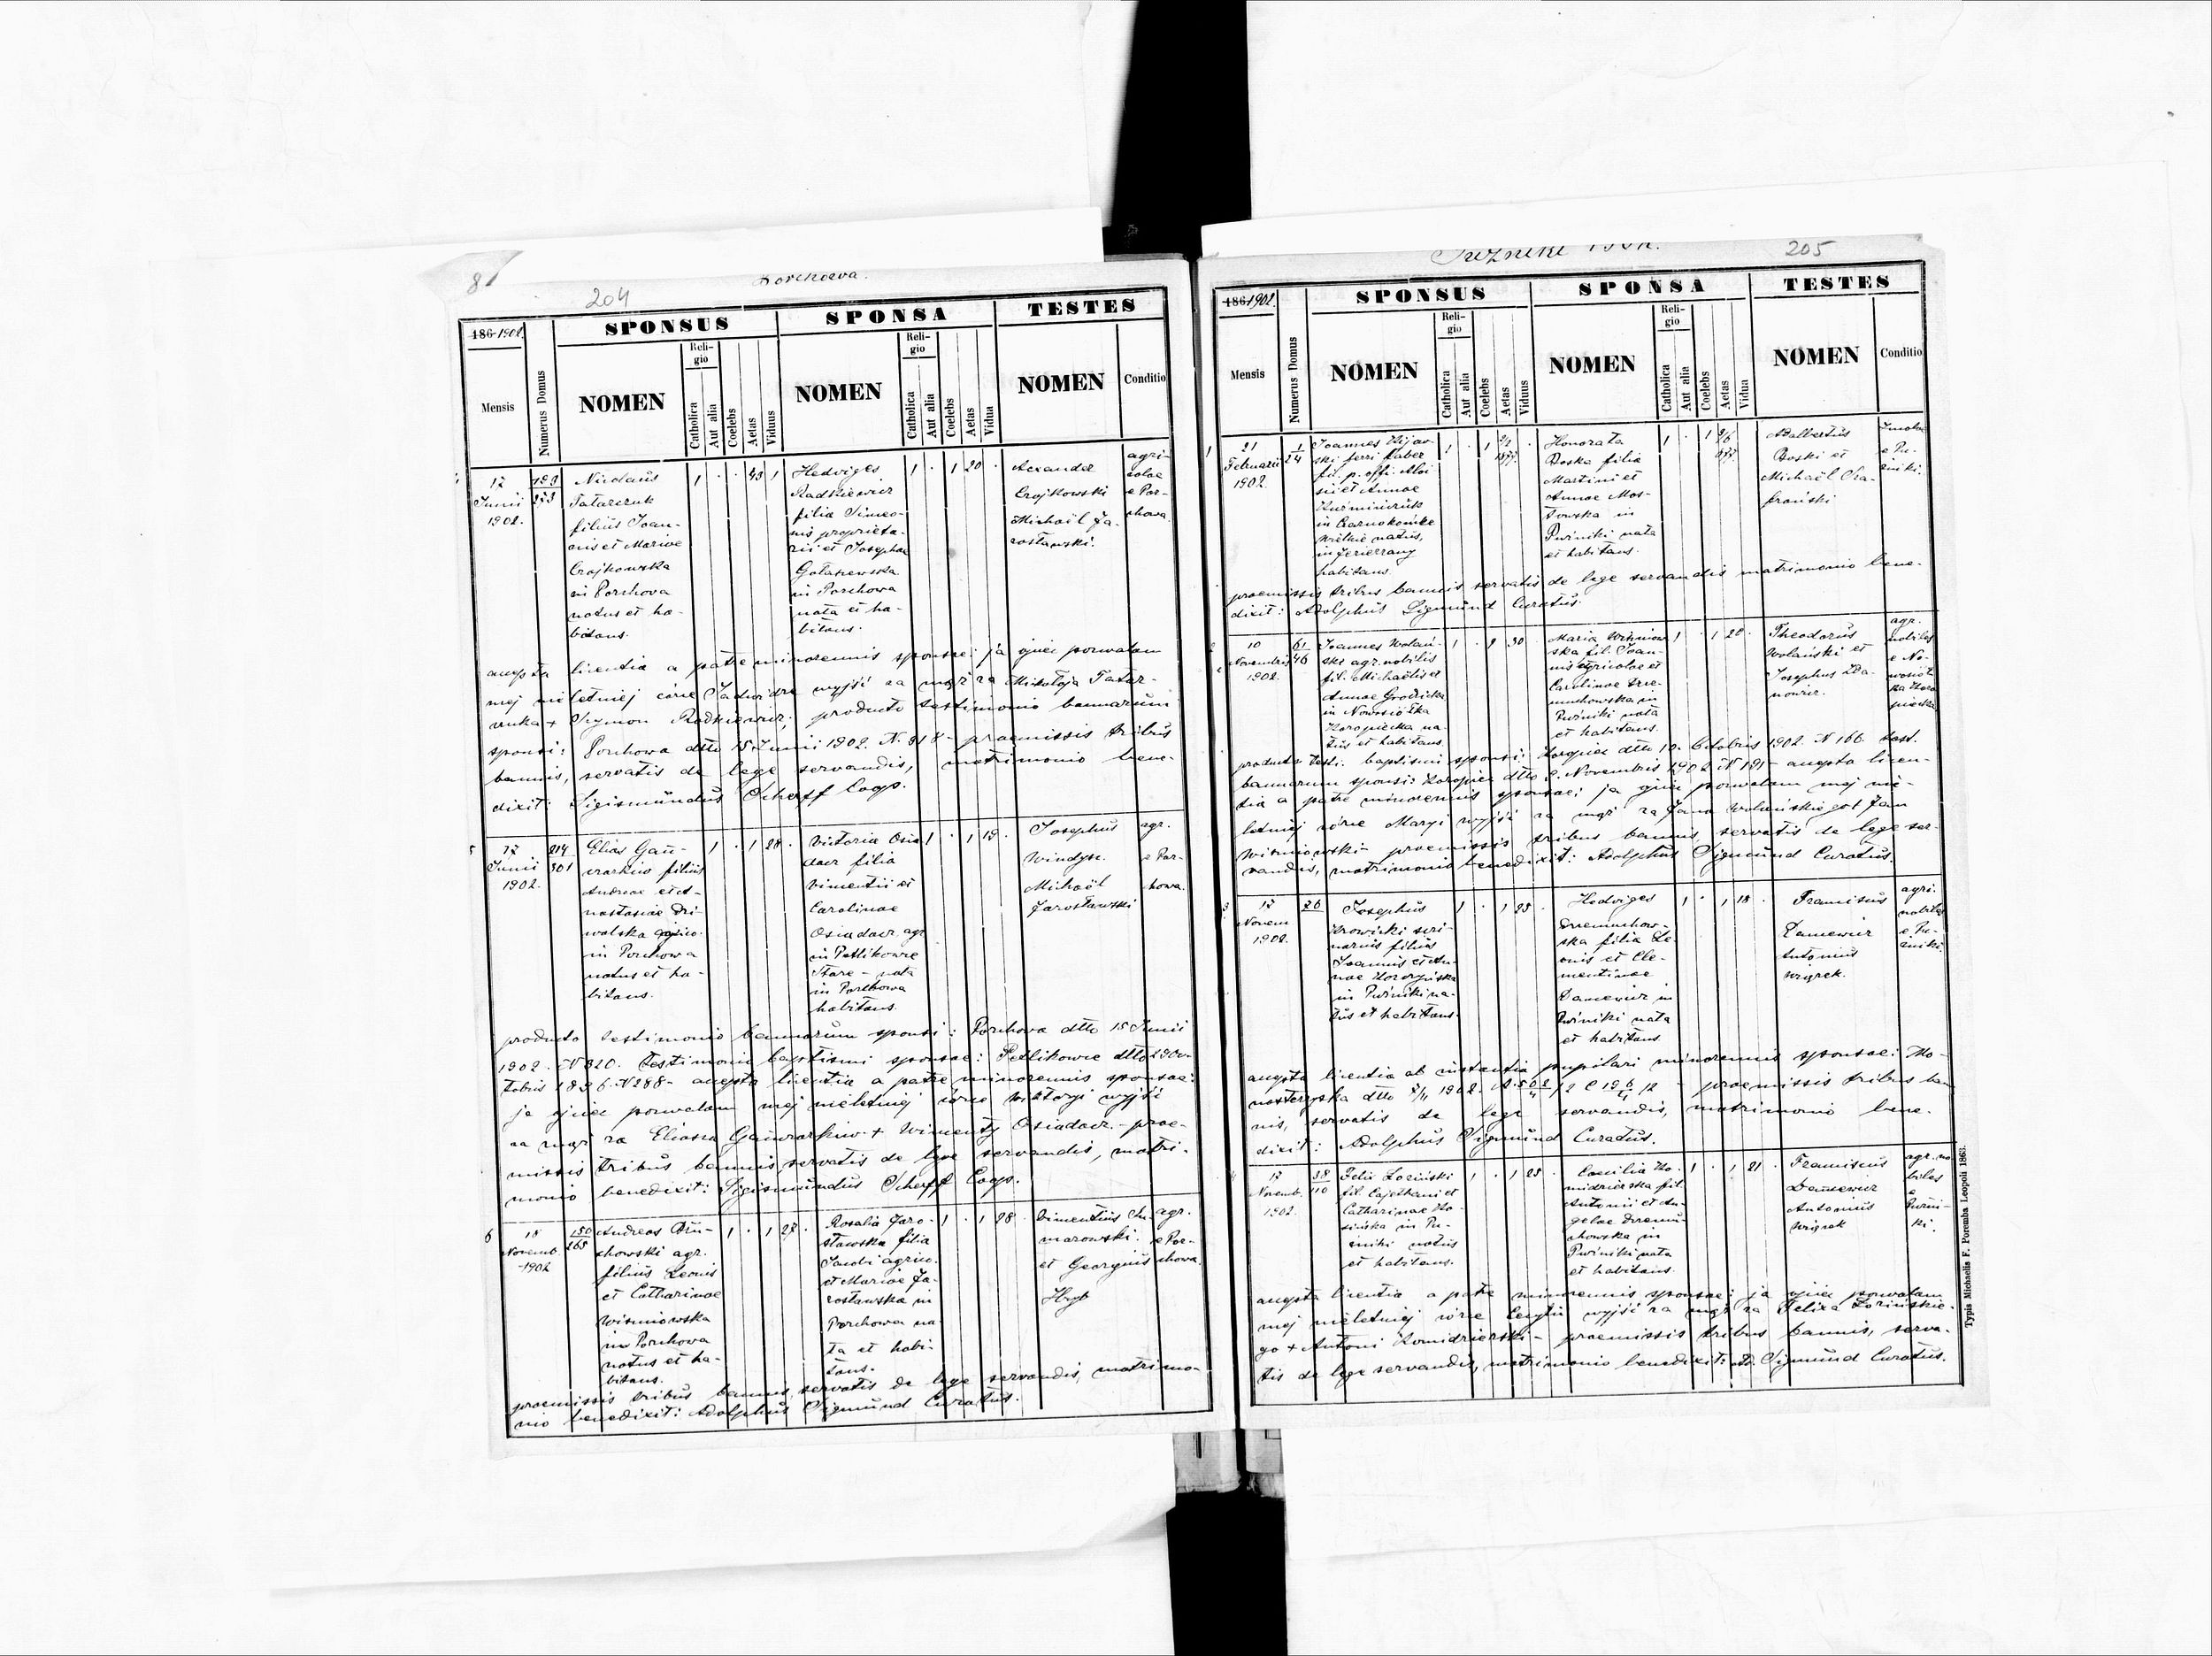 81
204
Porchowa.
186 1902.
SPONSUS
SPONSA
TESTES
Mensis
Numerus Domus
NOMEN
Religio
Catholica
Aut alia
Coelebs
Aetas
Viduus
NOMEN
Religio
Catholica
Aut alia
Coelebs
Aetas
Vidua
NOMEN
Conditio
17
Junii
1902.
Nicolaus
Tatarczuk
filius Joan-
nis et Mariae
Czajkowska
in Porchowa
natus et ha-
bitans.
1 . . 43 1
Hedviges
Radkiewicz
filia Simeo-
nis proprieta-
rii et Josephae
Gołaszewska
in Porchowa
nata et ha-
bitans.
1 . 1 20 .
Alexander
Czajkowski
Michaël Ja-
rosławski.
agri-
colae
e Por-
chowa
accepta licentia a patre minorennis sponsae: ja ojciec pozwalam
mej nieletniej córce Jadwidze wyjść za mąż za Mikołaja Tatar-
czuka + Szymon Radkiewicz; producto testimonio bannorum
sponsi: Porchowa dtto 15 Junii 1902. N. 318 - praemissis tribus
bannis, servatis de lege servandis, matrimonio bene-
dixit: Sigismundus Scherff Coop.
5
17
Junii
1902.
214
301
Elias Gau-
crarkiw filius
Andreae et A-
nastasiae Dri-
walska agrico.
in Porchowa
natus et ha-
bitans.
1 . 1 28 .
Victoria Osia
dacz filia
Vincentii et
Carolinae
Osiadacz agr.
in Petlikowce
Stare - nata
in Porchowa
habitans.
1 . 1 19 .
Josephus
Windyk.
Michaël
Jarosławski
agr.
e Por-
chowa.
producto testimonio bannorum sponsi: Porchowa dtto 15 Junii
1902. N 320. testimonio baptismi sponsae: Petlikowce dtto 29 Oc-
tobris 1896. N 288 - accepta licentia a patre minorennis sponsae:
ja ojciec pozwalam mej nieletniej córce Wiktoryi wyjść
za mąż za Eliasza + Wincenty Osiadacz. - prae-
missis tribus bannis, servatis de lege servandis, matri-
monio benedixit: Sigismundus Scherff Coop.
6
18
Novemb.
1902
150
265
Andreas
chowski agr.
filius Leonis
et Catharinae
Wiśniowska
in Porchowa
natus et ha-
bitans.
1 . 1 27 .
Rosalia Jaro-
sławska filia
Jacobi agrico.
et Mariae Ja-
rosławska in
Porchowa na-
ta et habi-
tans.
1 . 1 28 .
Vincentius
marowski.
et Georgius
Hryb
agr.
e Por-
chowa
praemissis tribus bannis, servatis de lege servandis, matrimo-
nio benedixit: Adolphus Sigmund Curatus.
Pużniki 1902.
205
186 1902.
SPONSUS
SPONSA
TESTES
Mensis
Numerus Domus
NOMEN
Religio
Catholica
Aut alia
Coelebs
Aetas
Viduus
NOMEN
Religio
Catholica
Aut alia
Coelebs
Aetas
Vidua
NOMEN
Conditio
1
21
Februarii
1902.
1
24
Joannes Kijow-
ski ferri faber
fil. p. off. Aloi
sii et Annae
Kuźminczuk
in Czarnokońce
Wielkie natus,
in Jezierzany
habitans
Honorata
Boska filia
Martini et
Annae Mos-
towska in
Pużniki nata
et habitans.
Adalbertus
Boski et
Michaël
e Pu-
żniki.
praemissis tribus bannis servatis de lege servandis matrimonio bene-
dixit: Adolphus Sigmund Curatus.
2
10
Novembris
1902.
61
46
Joannes Wolań-
ski agr. nobilis
fil. Michaëlis et
Annae Grodzicka
in Nowosiółka
Koropiecka na-
tus et habitans.
1 . 1 30 .
Maria Wiśniow
ska fil. Joan-
nis agricolae et
Carolinae Drze-
muchowska in
Pużniki nata
et habitans.
1 . 1 20 .
Theodorus
Wolański et
Josephus Da-
newicz.
agr.
nobiles
e No-
wosioł-
ka Koro
piecka
producto testi. baptismi sponsi: Koropiec dtto 10 Octobris 1902. N 166. test.
bannorum sponsi: Koropiec dtto 2. Novembris 1902 N 191 - accepta licen-
tia a patre minorennis sponsae: ja ojciec pozwalam mej nie-
letniej córce Maryi wyjść za mąż za Jana Wolańskiego + Jan
Wiśniowski - praemissis tribus bannis servatis de lege ser-
vandis, matrimonio benedixit: Adolphus Sigmund Curatus.
3
17
Novem
1902.
26
Josephus
Krowicki scri-
narius filius
Joannis et An-
nae
in Pużniki na-
tus et habitans.
Hedviges
Drzemuchow-
ska filia Le-
onis et Cle-
mentinae
Danewicz in
Pużniki nata
et habitans
1 . 1 18 .
Franciscus
Danewicz
Antonius
Wigrek.
agri.
nobiles
e Pu-
żniki.
accepta licentia ab instantia pupilari minorennis sponsae: Mo-
nasterzyska dtto 1902. praemissis tribus ban
nis, servatis de lege servandis, matrimonio bene-
dixit: Adolphus Sigmund Curatus.
17
Novemb.
1902.
38
110
Felix Łoziński
fil. Cajethani et
Catharinae Ło-
zińska in Pu-
żniki natus
et habitans.
Caecilia Ko-
midzierska fil.
Antonii et An-
gelae Drzemu-
chowska in
Pużniki nata
et habitans.
1 . 1 21 .
Franciscus
Danewicz
Antonius
Wigrek
agr. no
biles
e
Pużni-
ki.
accepta licentia a patre minorennis sponsae: ja ojciec pozwalam
mej nieletniej córce Cecylii wyjść za mąż za Felixa Łozińskie-
go + Antoni Komidzierski - praemissis tribus bannis, serva-
tis de lege servandis, matrimonio benedixit: Ad. Sigmund Curatus.
Typis Michaelis F. Poremba Leopoli 1863.